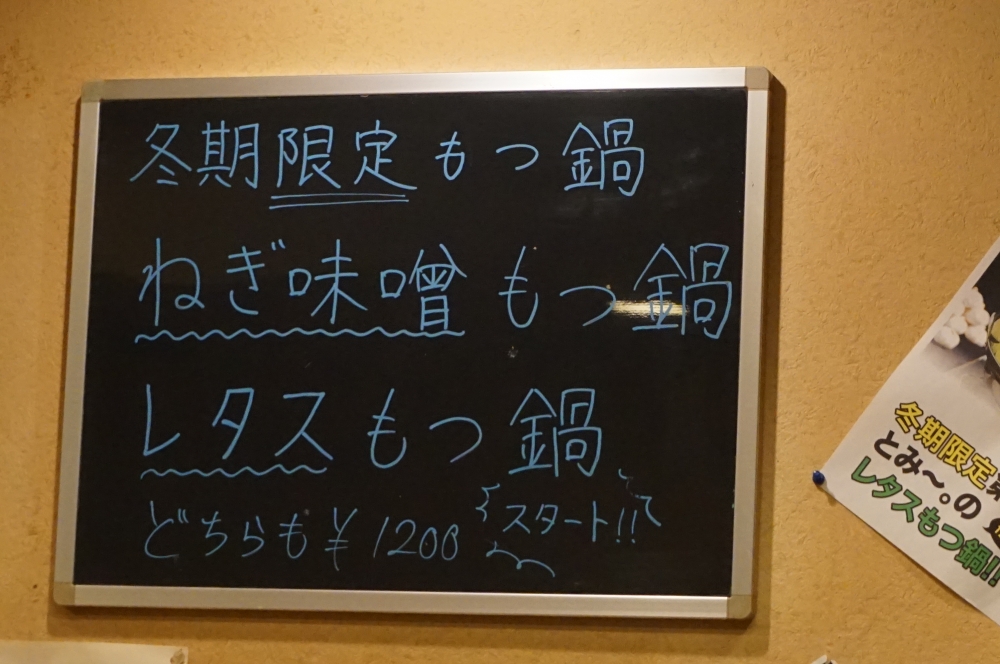 冬期限定もつ鍋
ねぎ味噌もつ鍋
レタスもつ鍋
どちらも¥1200
スタート!!
冬期限定
とみ〜。の
レタスもつ鍋!!